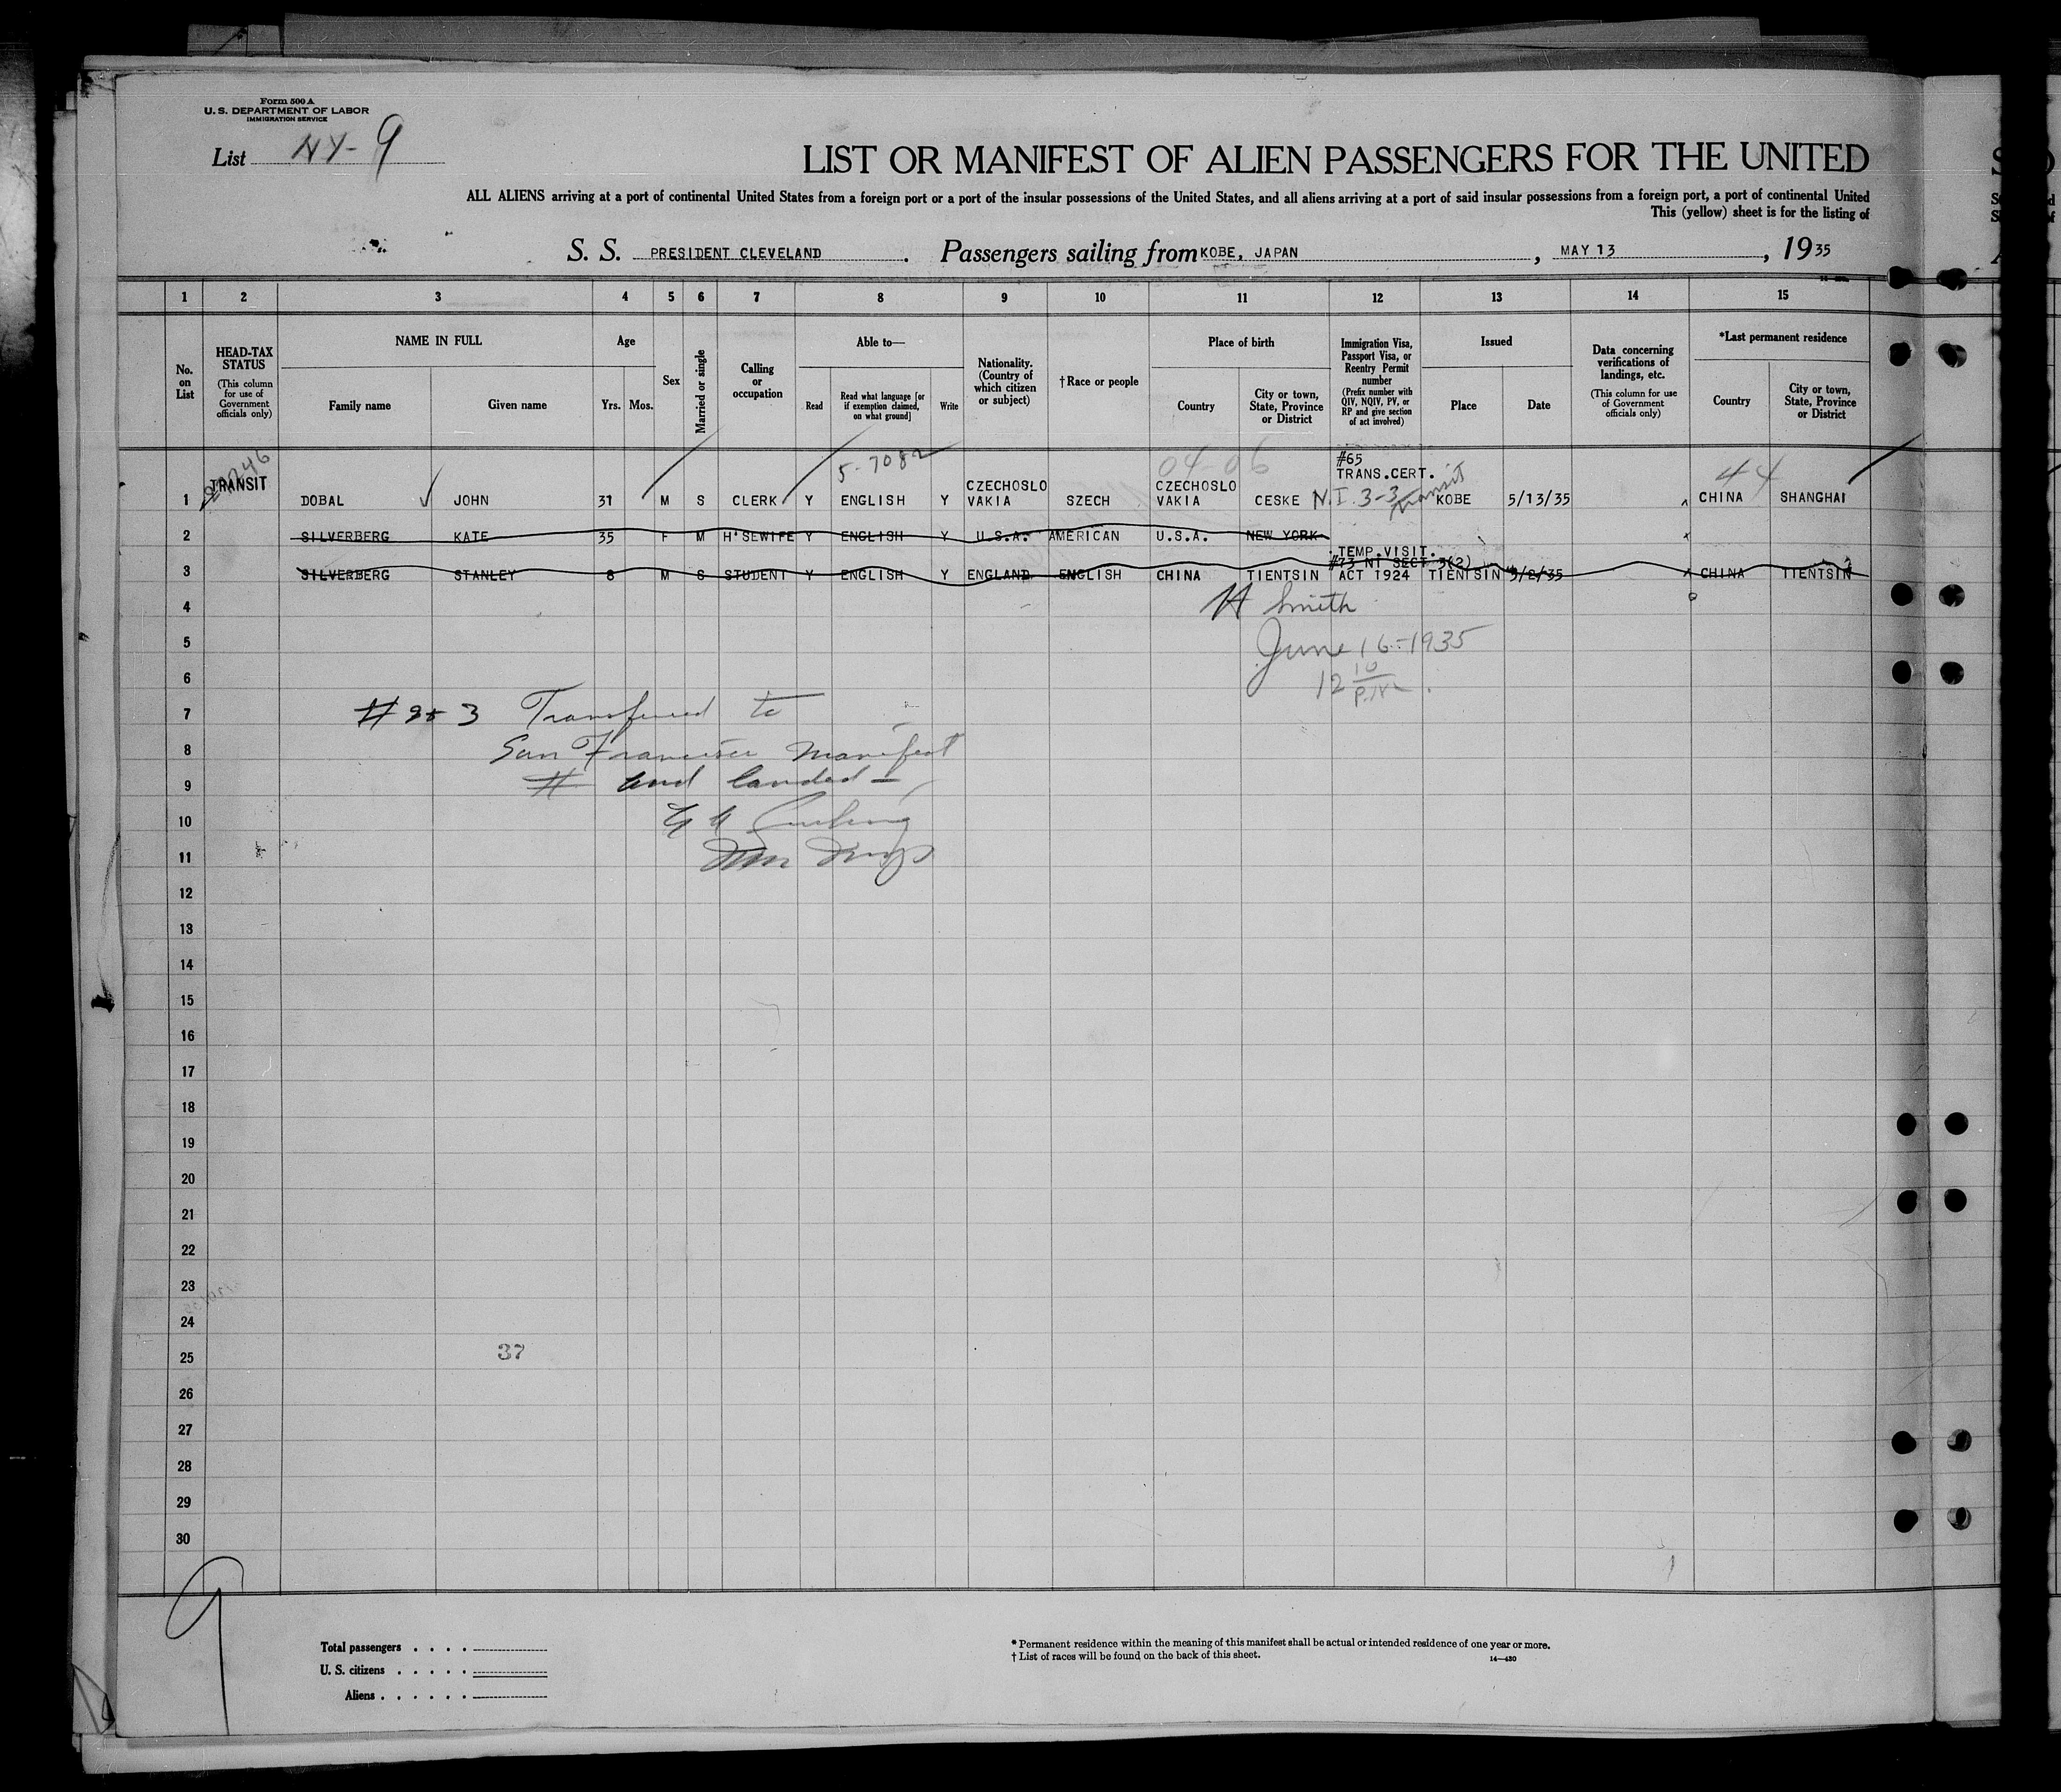 Form 500 A
U. S. DEPARTMENT OF LABOR
IMMIGRATION SERVICE
List NY-9
LIST OR MANIFEST OF ALIEN PASSENGERS FOR THE UNITED
ALL ALIENS arriving at a port of continental United States from a foreign port or a port of the insular possessions of the United States, and all aliens arriving at a port of said insular possessions from a foreign port, a port of continental United
This (yellow) sheet is for the listing of
S. S. PRESIDENT CLEVELAND. Passengers sailing from KOBE, JAPAN, MAY 13, 1935
1 2 3 4 5 6 7 8 9 10 11 12 13 14 15
No. on List
HEAD-TAX STATUS (This column for use of Government officials only)
NAME IN FULL
Family name Given name
Age
Yrs. Mos.
Sex
Married or single
Calling or occupation
Able to—
Read Read what language [or if exemption claimed, on what ground] Write
Nationality. (Country of which citizen or subject)
†Race or people
Place of birth
Country City or town, State, Province or District
Immigration Visa, Passport Visa, or Reentry Permit number (Prefix number with QIV, NQIV, PV, or RP and give section of act involved)
Issued
Place Date
Data concerning verifications of landings, etc. (This column for use of Government officials only)
*Last permanent residence
Country City or town, State, Province or District
5-7082 04-06 #65 44
TRANS.CERT.
1 TRANSIT DOBAL JOHN 31 M S CLERK Y ENGLISH Y CZECHOSLO VAKIA SZECH CZECHOSLO VAKIA CESKE N.I. 3-3 Transit KOBE 5/13/35 CHINA SHANGHAI
2 SILVERBERG KATE 35 F M H'SEWIFE Y ENGLISH Y U.S.A. AMERICAN U.S.A. NEW YORK
TEMP.VISIT.
3 SILVERBERG STANLEY 8 M S STUDENT Y ENGLISH Y ENGLAND ENGLISH CHINA TIENTSIN #73 NI SECT 3(2) ACT 1924 TIENTSIN 5/2/35 CHINA TIENTSIN
4 H Smith
5 June 16-1935
6 12 10 P.M.
7 # 2 & 3 Transferred to
8 San Francisco Manifest
9 # and landed -
10
11
12
13
14
15
16
17
18
19
20
21
22
23
24
25 37
26
27
28
29
30
9
Total passengers
U. S. citizens
Aliens
* Permanent residence within the meaning of this manifest shall be actual or intended residence of one year or more.
† List of races will be found on the back of this sheet.
14—430